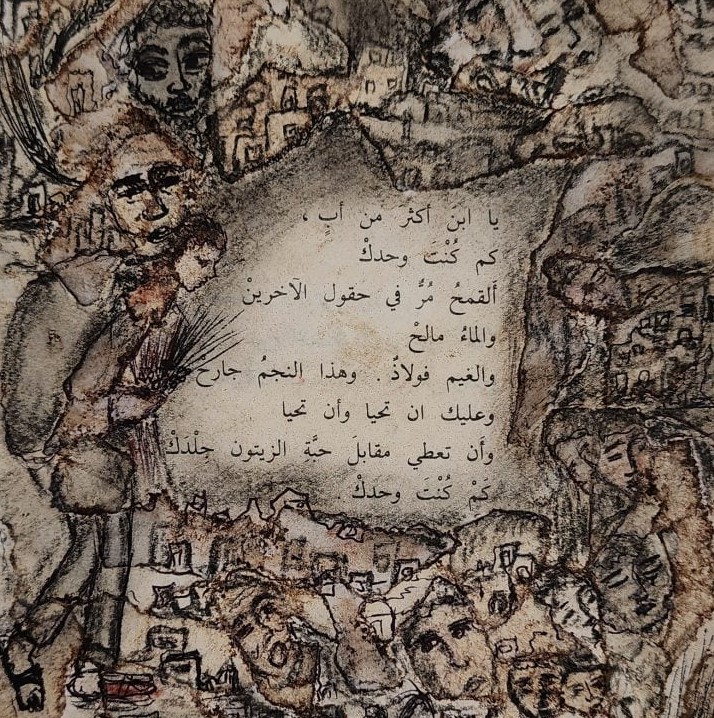 يا ابنَ أكثرَ من أبٍ ،
كم كُنْتَ وحدكْ
أَلقمحُ مُرٌّ في حقول الآخرينْ
والماءُ مالحْ
والغيم فولاذٌ . وهذا النجمُ جارحْ
وعليك ان تحيا وأن تحيا
وأَن تعطي مقابلَ حبَّةِ الزيتون جِلْدَكْ
كَمْ كُنْتَ وحدكْ.